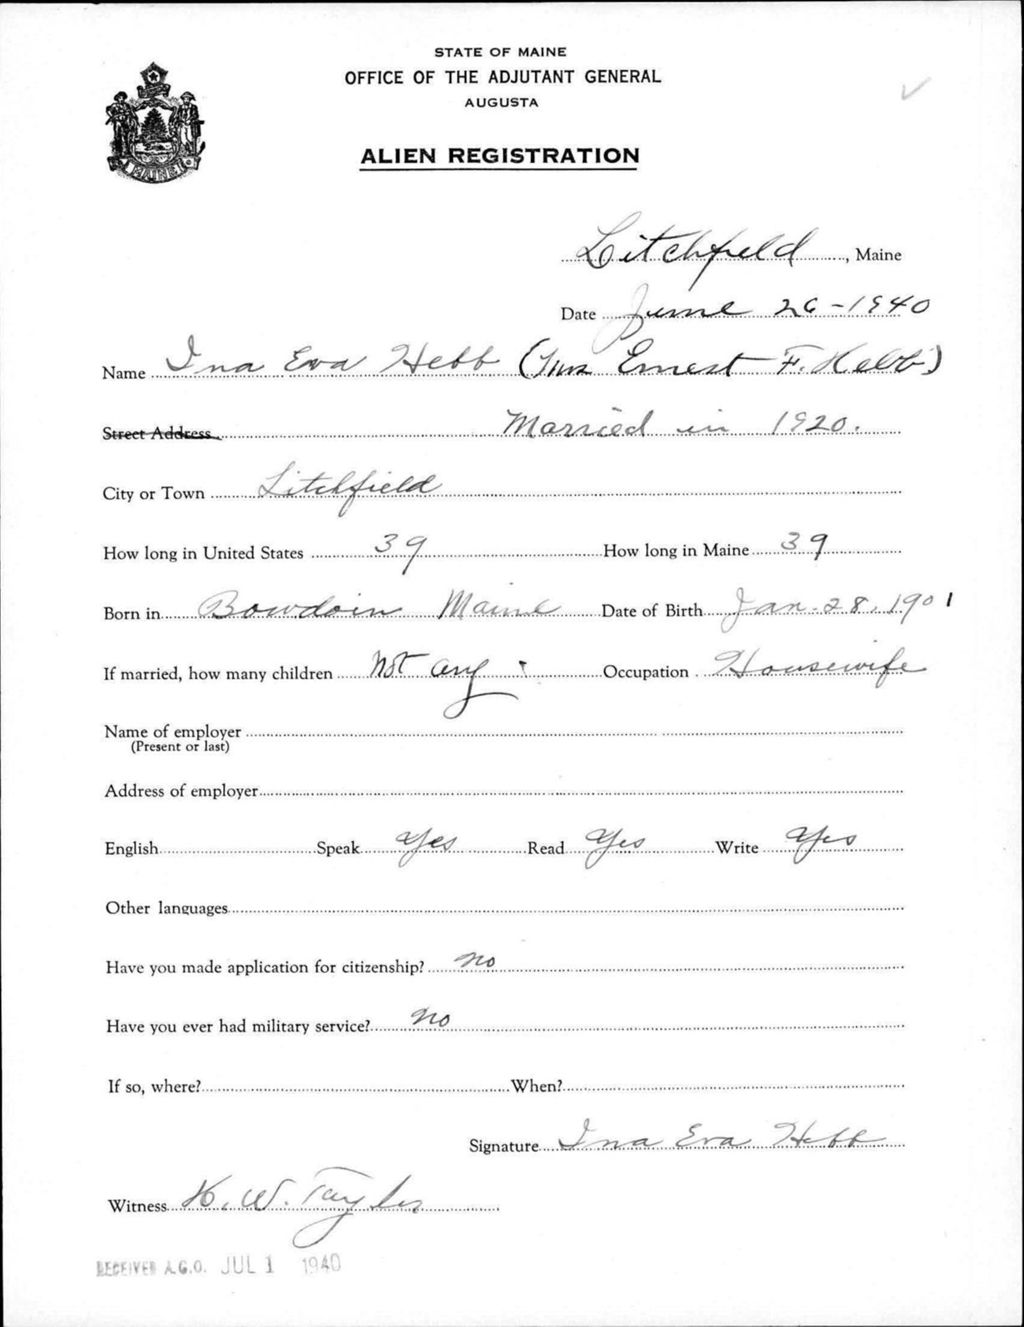 STATE OF MAINE
OFFICE OF THE ADJUTANT GENERAL
AUGUSTA
MAINE
ALIEN REGISTRATION
Litchfield, Maine
Date June 26-1940
Name Ina Eva Hebb (Mrs Ernest F. Hebb)
Street Address Married in 1920.
City or Town Litchfield
How long in United States 39 How long in Maine 39
Born in Bowdoin Maine Date of Birth Jan. 28, 1901
If married, how many children Not any. Occupation Housewife
Name of employer
(Present or last)
Address of employer
English Speak Yes Read Yes Write Yes
Other languages
Have you made application for citizenship? no
Have you ever had military service? no
If so, where? When?
Signature Ina Eva Hebb
Witness H. W. Taylor
RECEIVED A.G.O. JUL 1 1940